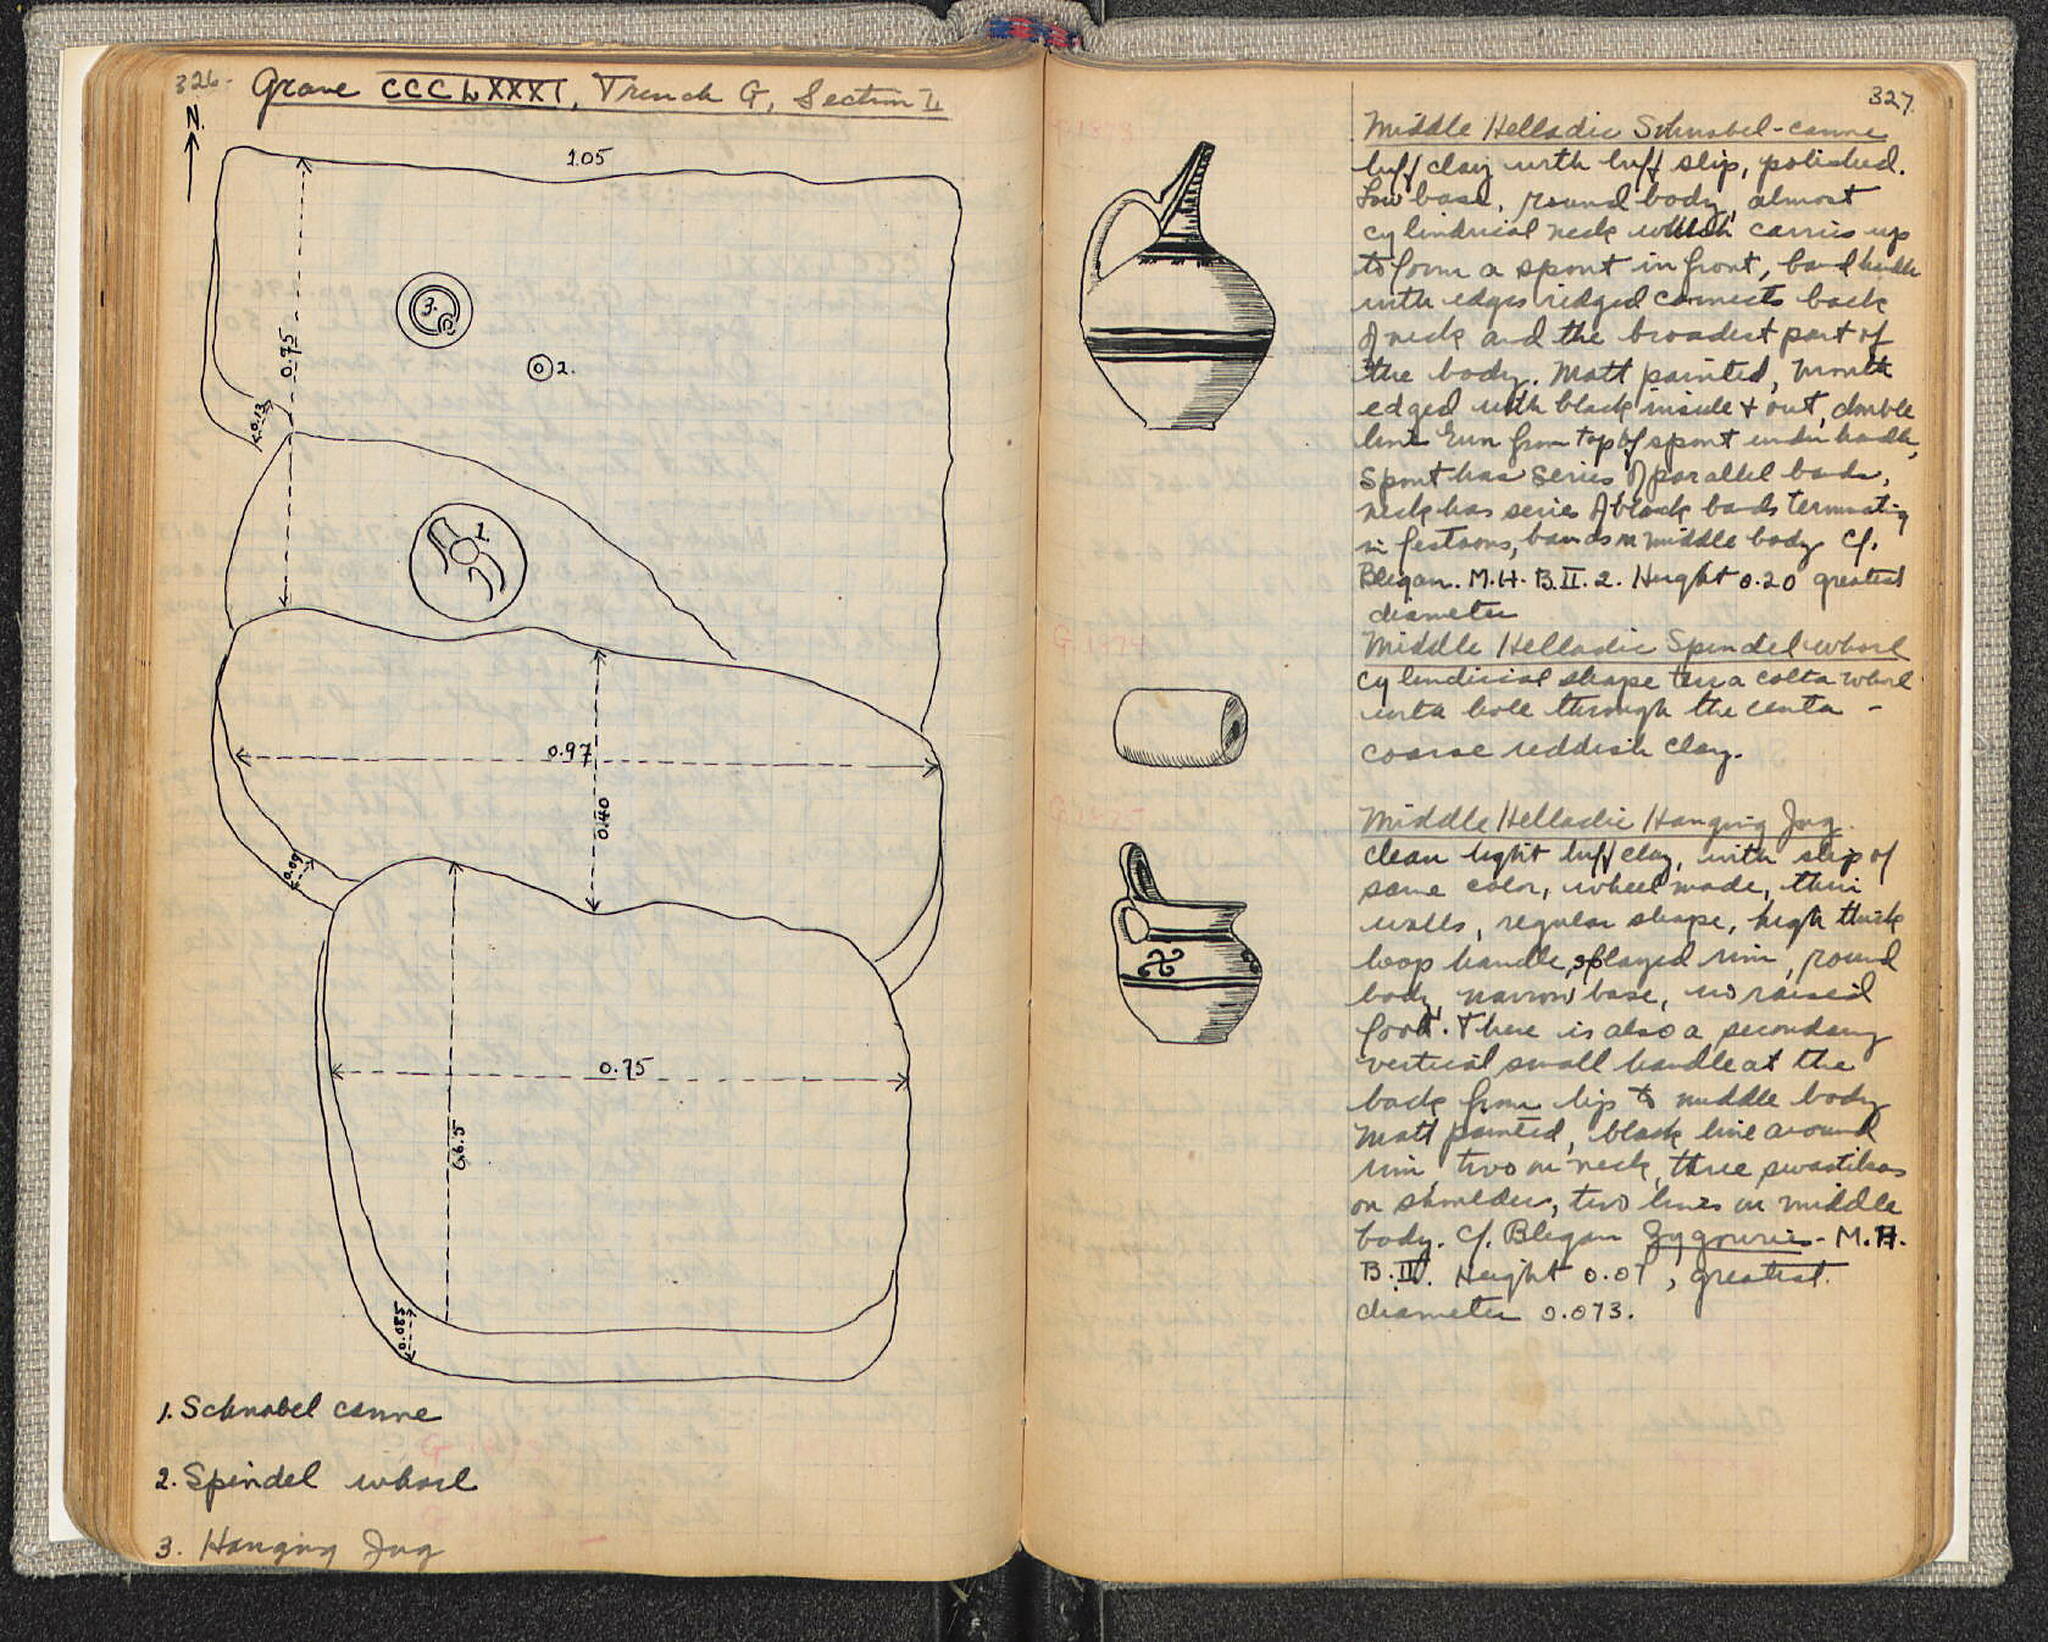 326.
Grave CCCLXXXI, Trench G, Section II
N.
1.05
0.75
3.
2.
0.13
1.
0.97
0.40
0.09
0.75
0.085
1. Schnabel canne
2. Spindel whorl
3. Hanging Jug
327.
Middle Helladic Schnabel-canne
buff clay with buff slip, polished.
Low base, round body, almost
cylindrical neck which carries up
to form a spout in front, band handle
with edges ridged connects back
of neck and the broadest part of
the body. Matt painted, mouth
edged with black inside + out, double
line run from top of spout under handle,
Spout has series of parallel bands,
neck has series of black bands terminating
in festoons, bands on middle body Cf.
Blegan. M.H. B.II. 2. Height 0.20 greatest
diameter
G 1874
Middle Helladic Spindel whorl
cylindrical shape terra cotta whorl
with hole through the center -
coarse reddish clay.
G 1875
Middle Helladic Hanging Jug.
Clean light buff clay, with slip of
same color, wheel made, thin
walls, regular shape, high thick
loop handle, splayed rim, round
body, narrow base, no raised
foot. There is also a secondary
vertical small handle at the
back from lip to middle body
Matt painted, black line around
rim, two on neck, three swastikas
on shoulder, two lines on middle
body. Cf. Blegan Zygouries - M.H.
Height 0.07, greatest
diameter 0.073.